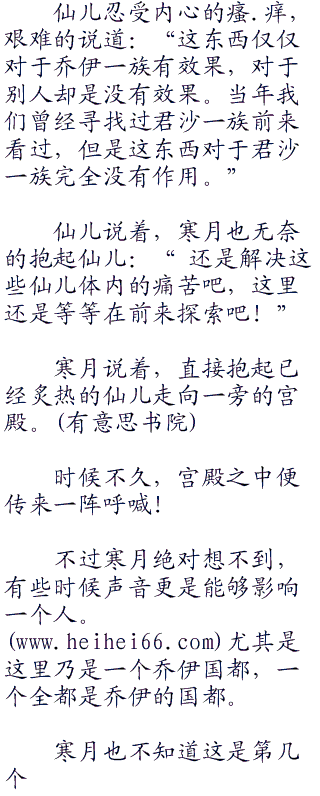 仙儿忍受内心的瘙.痒，
艰难的说道：“这东西仅仅
对于乔伊一族有效果，对于
别人却是没有效果。当年我
们曾经寻找过君沙一族前来
看过，但是这东西对于君沙
一族完全没有作用。”
仙儿说着，寒月也无奈
的抱起仙儿：“ 还是解决这
些仙儿体内的痛苦吧，这里
还是等等在前来探索吧！”
寒月说着，直接抱起已
经炙热的仙儿走向一旁的宫
殿。(有意思书院)
时候不久，宫殿之中便
传来一阵呼喊！
不过寒月绝对想不到，
有些时候声音更是能够影响
一个人。
(www.heihei66.com)尤其是
这里乃是一个乔伊国都，一
个全都是乔伊的国都。
寒月也不知道这是第几
个